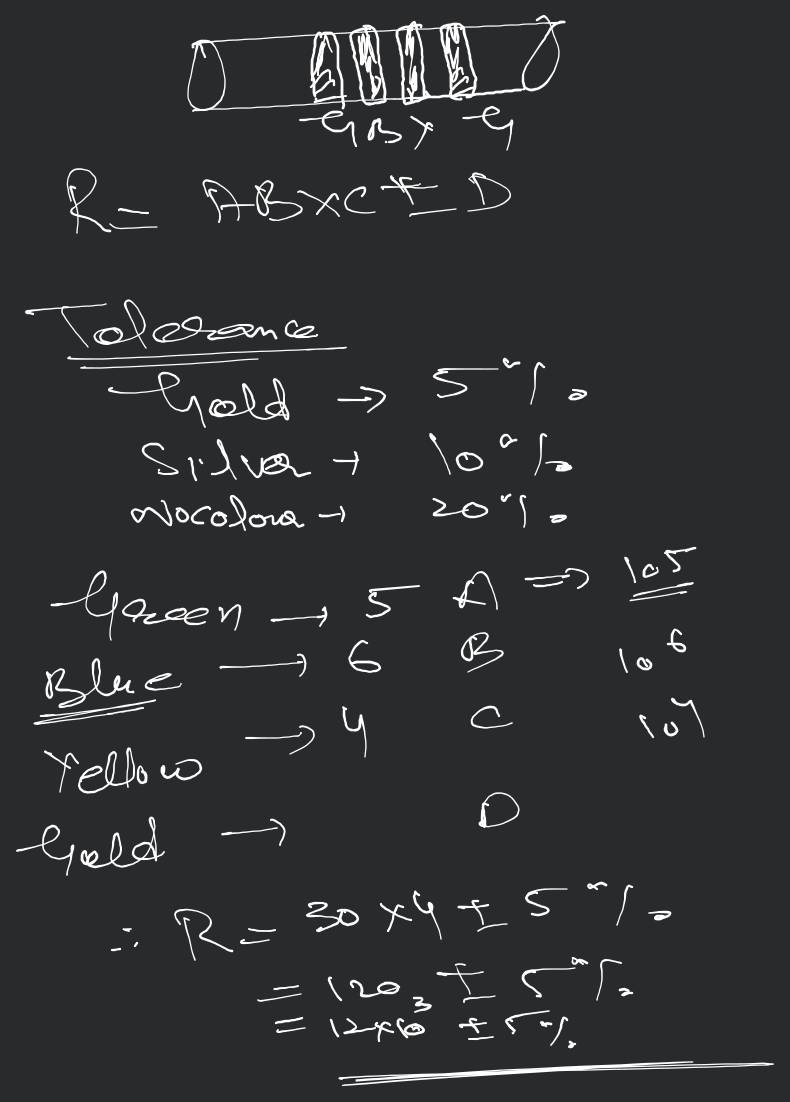 G B Y G
R = AB×C ± D
Tolerance
Gold → 5%
Silver → 10%
No colour → 20%
Green → 5 A => 10⁵
Blue → 6 B 10⁶
Yellow → 4 C 10⁴
Gold → D
∴ R = 30 × 4 ± 5%
= 120 ± 5%
= 12×10³ ± 5%